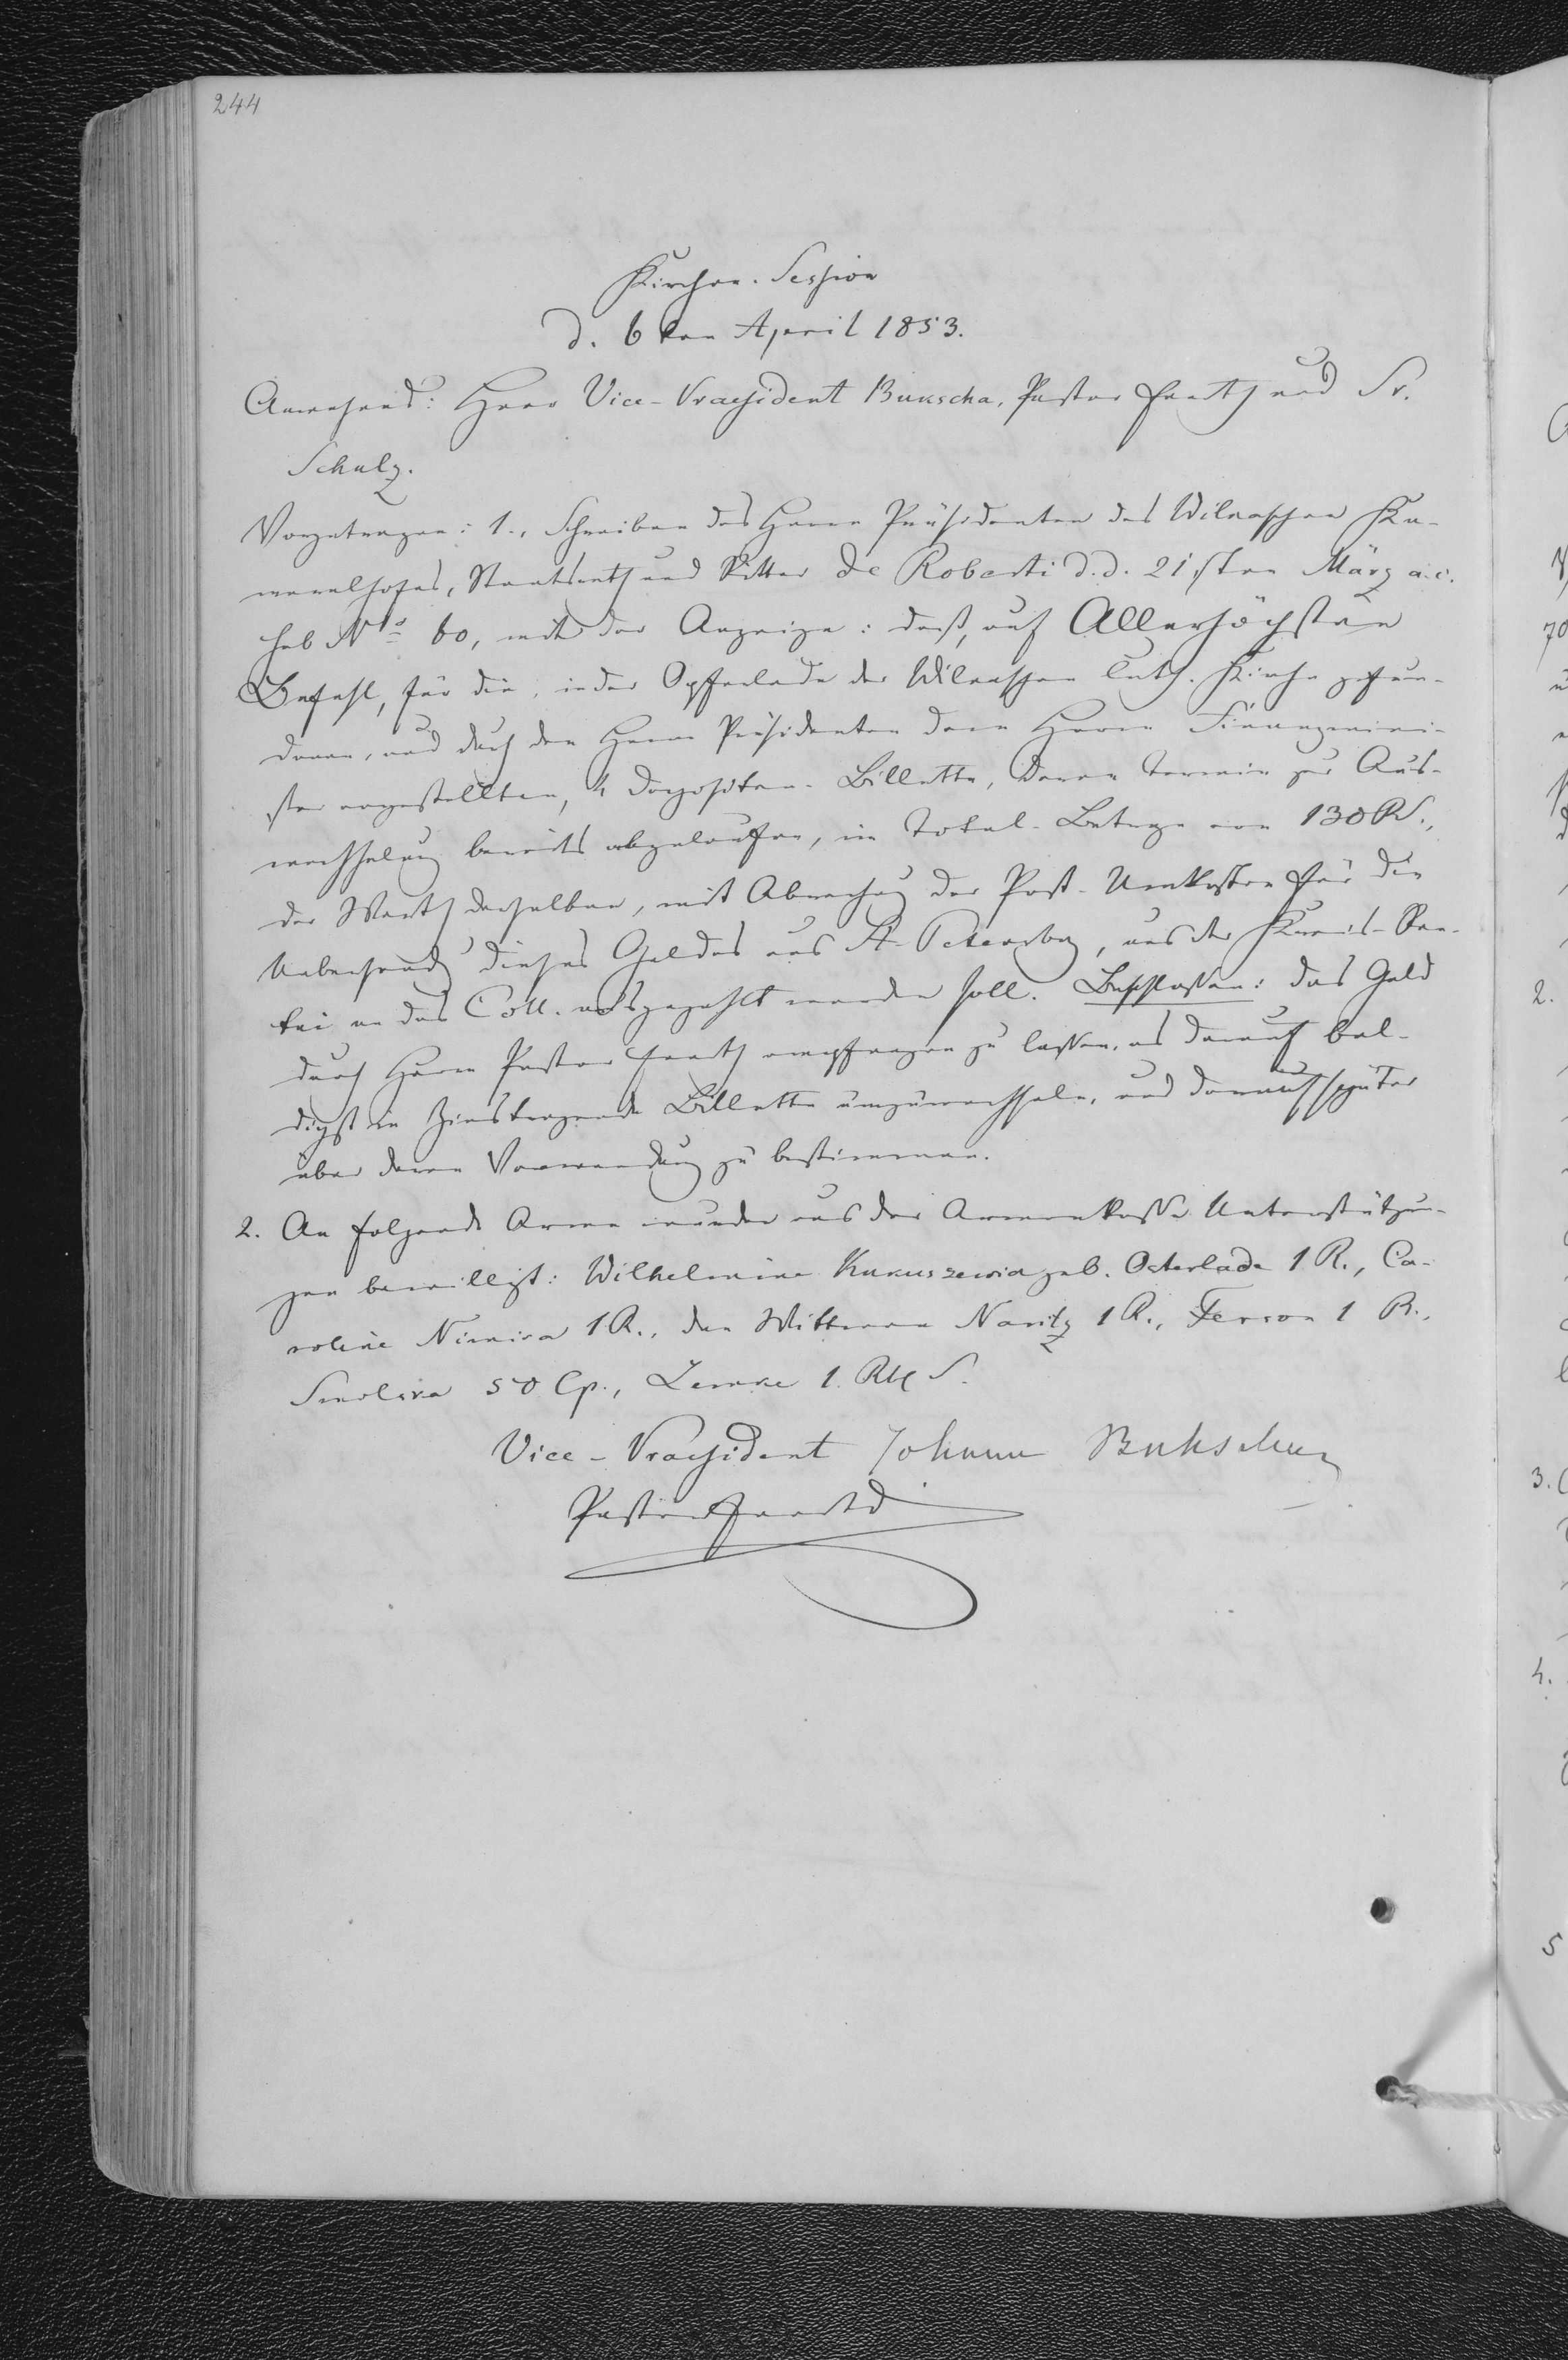 244
Kirchen-Session
d. 6ten April 1853.
Anwesend: Herr Vice-Praesident Bukscha, Pastor und Sr.
Schulz.
Vorgetragen: 1., Schreiben des Herrn Präsidenten des Wilnaschen Ka-
meralhofes, Staatsrath und Ritter de Roberti d. d. 21sten März a. c.
sub No 60, mit der Anzeige: daß, auf Allerhöchsten
Befehl, für die, in der Opferlade der Wilnaschen luth. Kirche gefun-
denen, und durch den Herrn Präsidenten dem Herrn Finanzmini-
ster vorgestellten, 4 Depositen-Billette, deren Termin zur Aus-
wechselung bereits abgelaufen, im Total-Betrage von 130 R.,
der Werth derselben, mit Abrechng der Post-Unkosten für die
Uebersendg dieses Geldes aus St. Petersbg, aus der Kreis-Ren-
tei an das Coll. ausgezahlt werden soll. Beschlossen: das Geld
durch Herrn Pastor empfangen zu lassen, es darauf bal-
digst in Zinstragende Billette umzuwechseln, und darauf später
über deren Verwendung zu bestimmen.
2. An folgende Arme wurden aus der Armenkasse Unterstützun-
gen bewilligt: Wilhelmine Kukuszewia geb. Osterlade 1 R., Ca-
roline Nimira 1 R., den Wittwen Naritz 1 R., Ferron 1 R.,
Smolska 50 Cp., Lemke 1. Rbl S.
Vice-Praesident Johann Bukscha
Pastor
2.
3.
4.
5